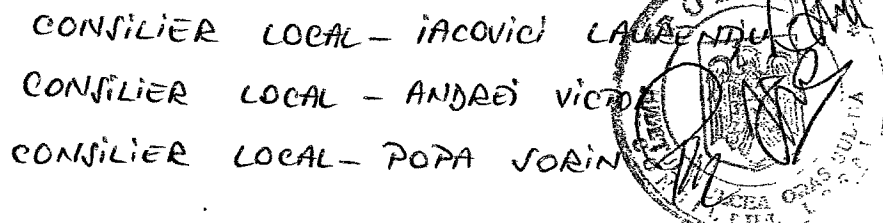 CONSILIER LOCAL - IACOVICI LAURENȚIU
CONSILIER LOCAL - ANDREI VICTOR
CONSILIER LOCAL - POPA SORIN